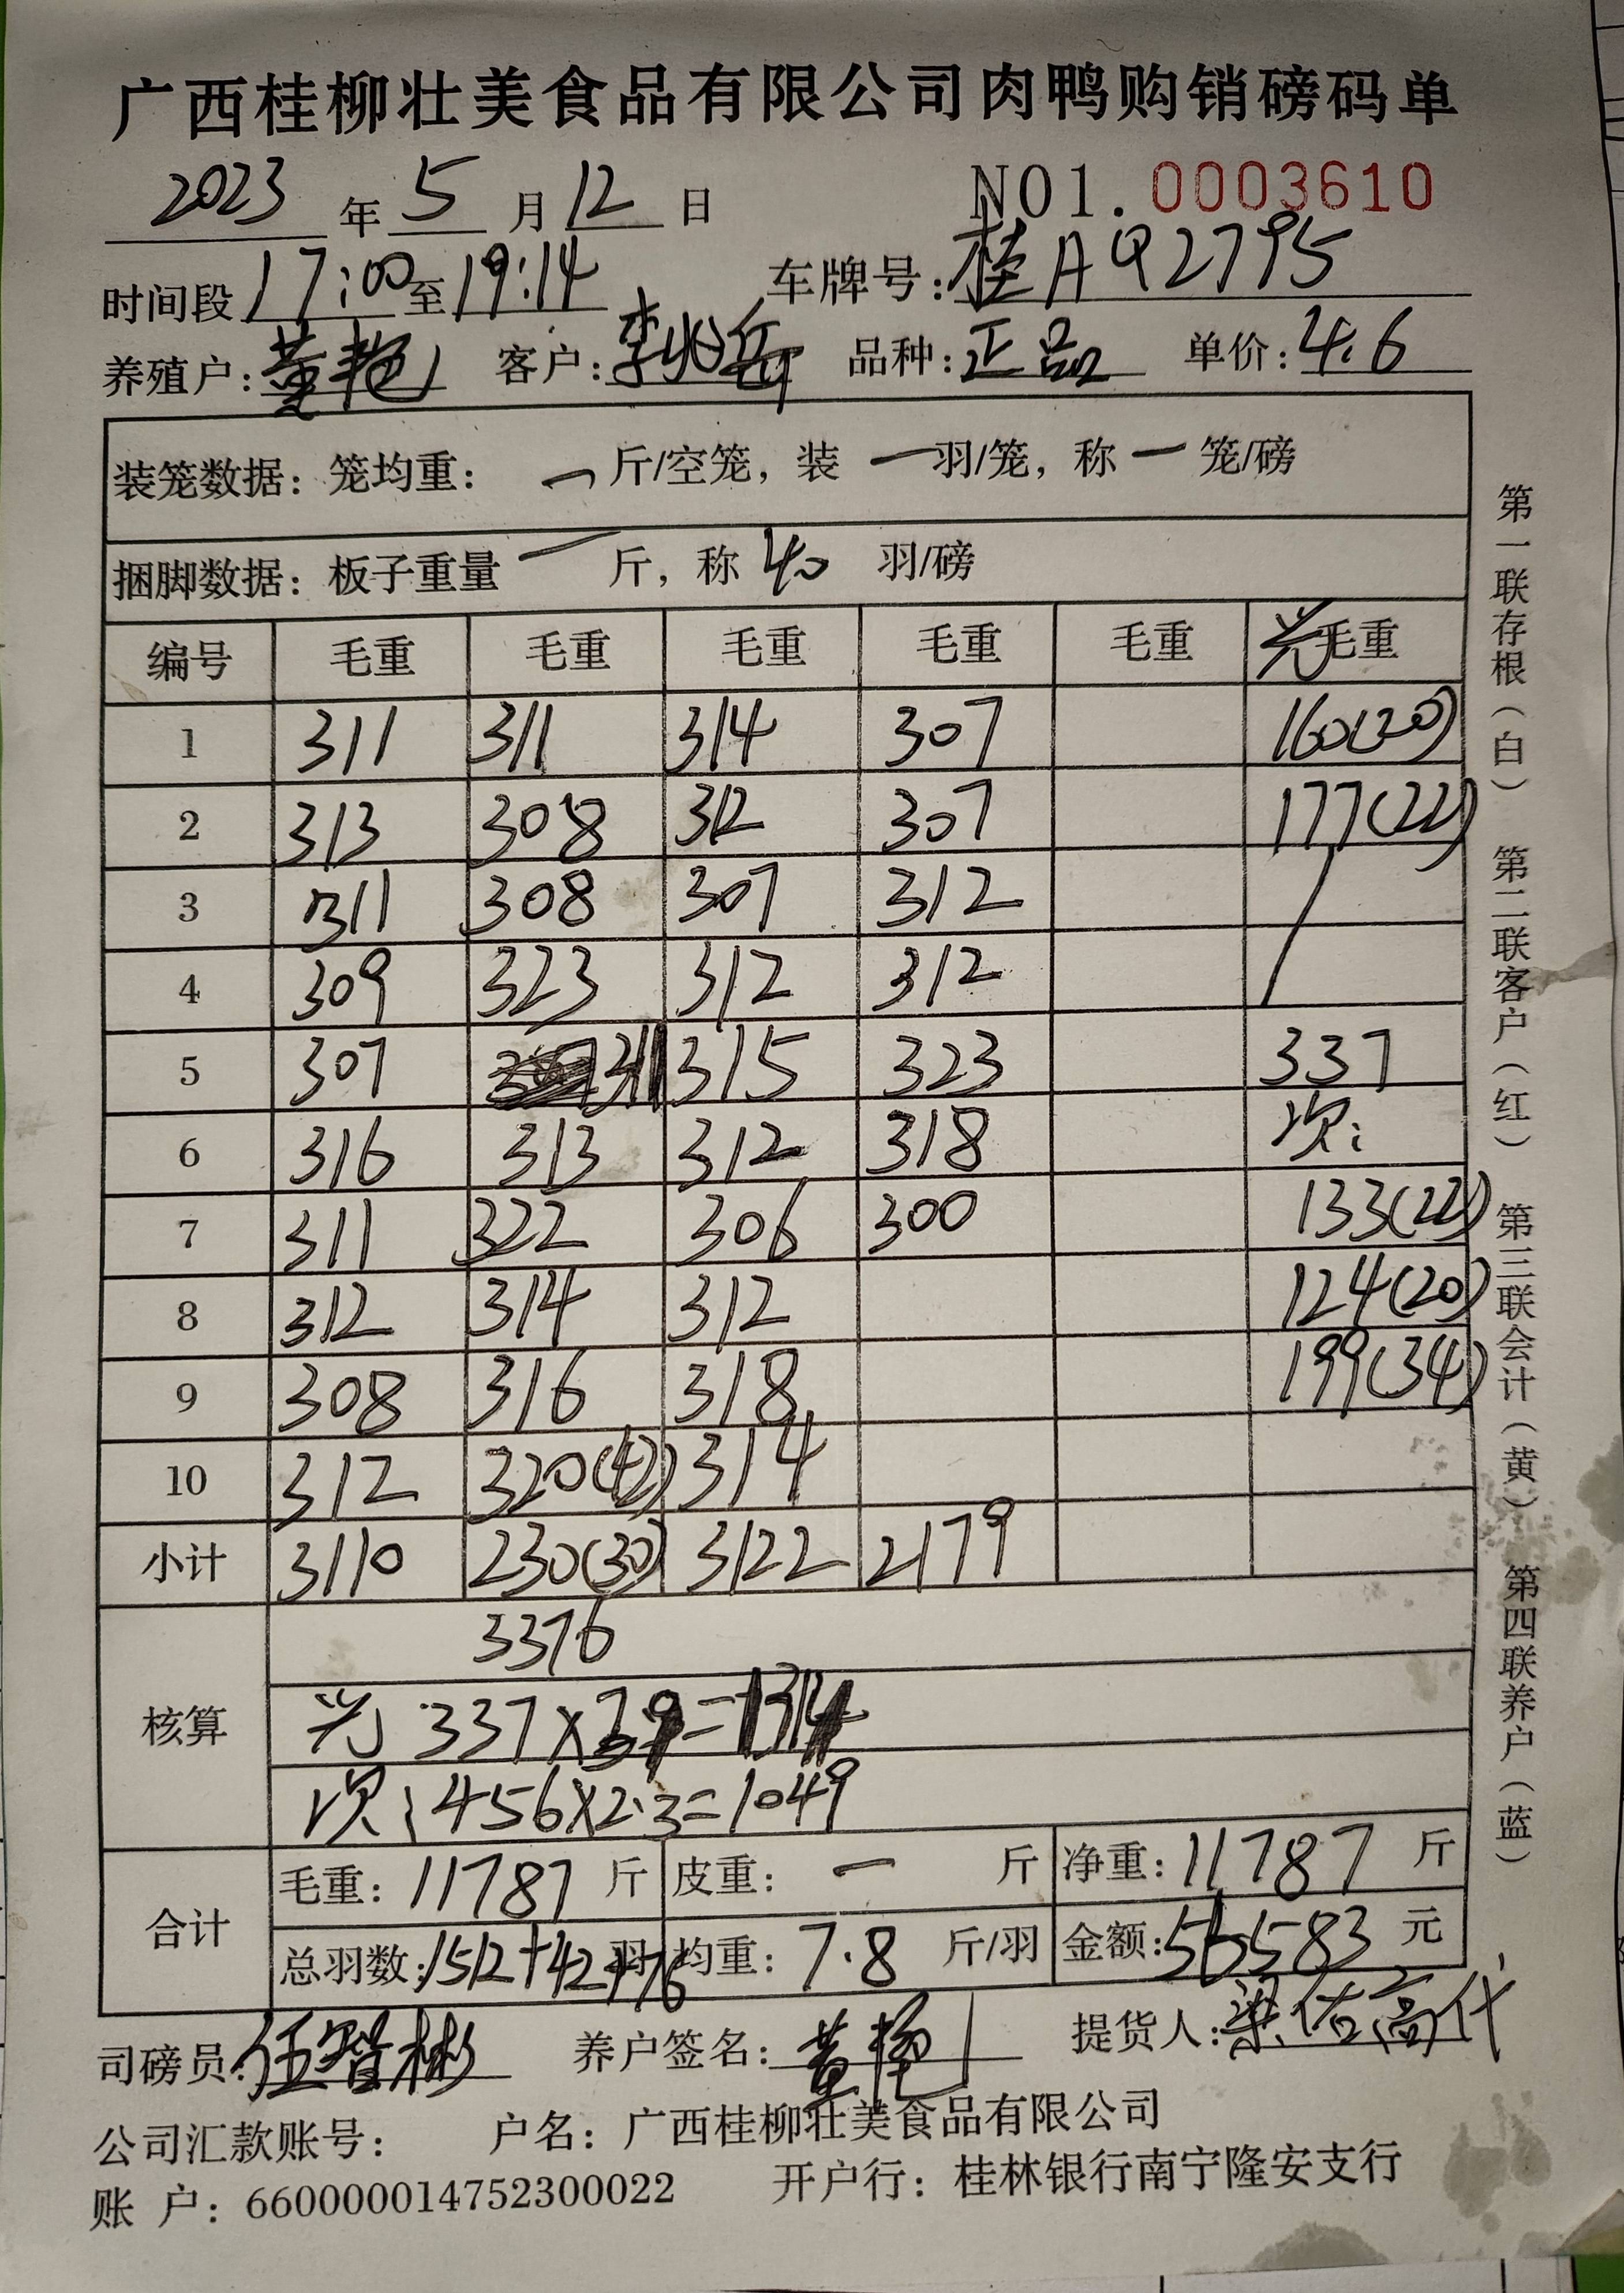 广西桂柳壮美食品有限公司肉鸭购销磅码单
2023年5月12日 NO1.0003610
时间段17:00至19:14 车牌号:桂AQ2795
养殖户:董艳 客户:李兆岳 品种:正品 单价:4.6
装笼数据:笼均重: 一 斤/空笼,装 一 羽/笼,称 一 笼/磅
捆脚数据:板子重量 一 斤,称 40 羽/磅
编号 毛重 毛重 毛重 毛重 毛重 光毛重
1 311 311 314 307 160(20)
2 313 308 312 307 177(22)
3 311 308 307 312
4 309 323 312 312
5 307 311 315 323 337
6 316 313 312 318 次:
7 311 322 306 300 133(22)
8 312 314 312 124(20)
9 308 316 318 199(34)
10 312 320(42) 314
小计 3110 230(30) 3122 2179
3376
核算 光 337×3.9=1314
次:456×2.3=1049
合计 毛重:11787斤 皮重:一 斤 净重:11787 斤
总羽数:1512+42+76羽 均重:7.8 斤/羽 金额:56583 元
司磅员:伍智彬 养户签名:董艳 提货人:梁佑高代
公司汇款账号: 户名:广西桂柳壮美食品有限公司
账 户:660000014752300022 开户行:桂林银行南宁隆安支行
第一联存根(白) 第二联客户(红) 第三联会计(黄) 第四联养户(蓝)